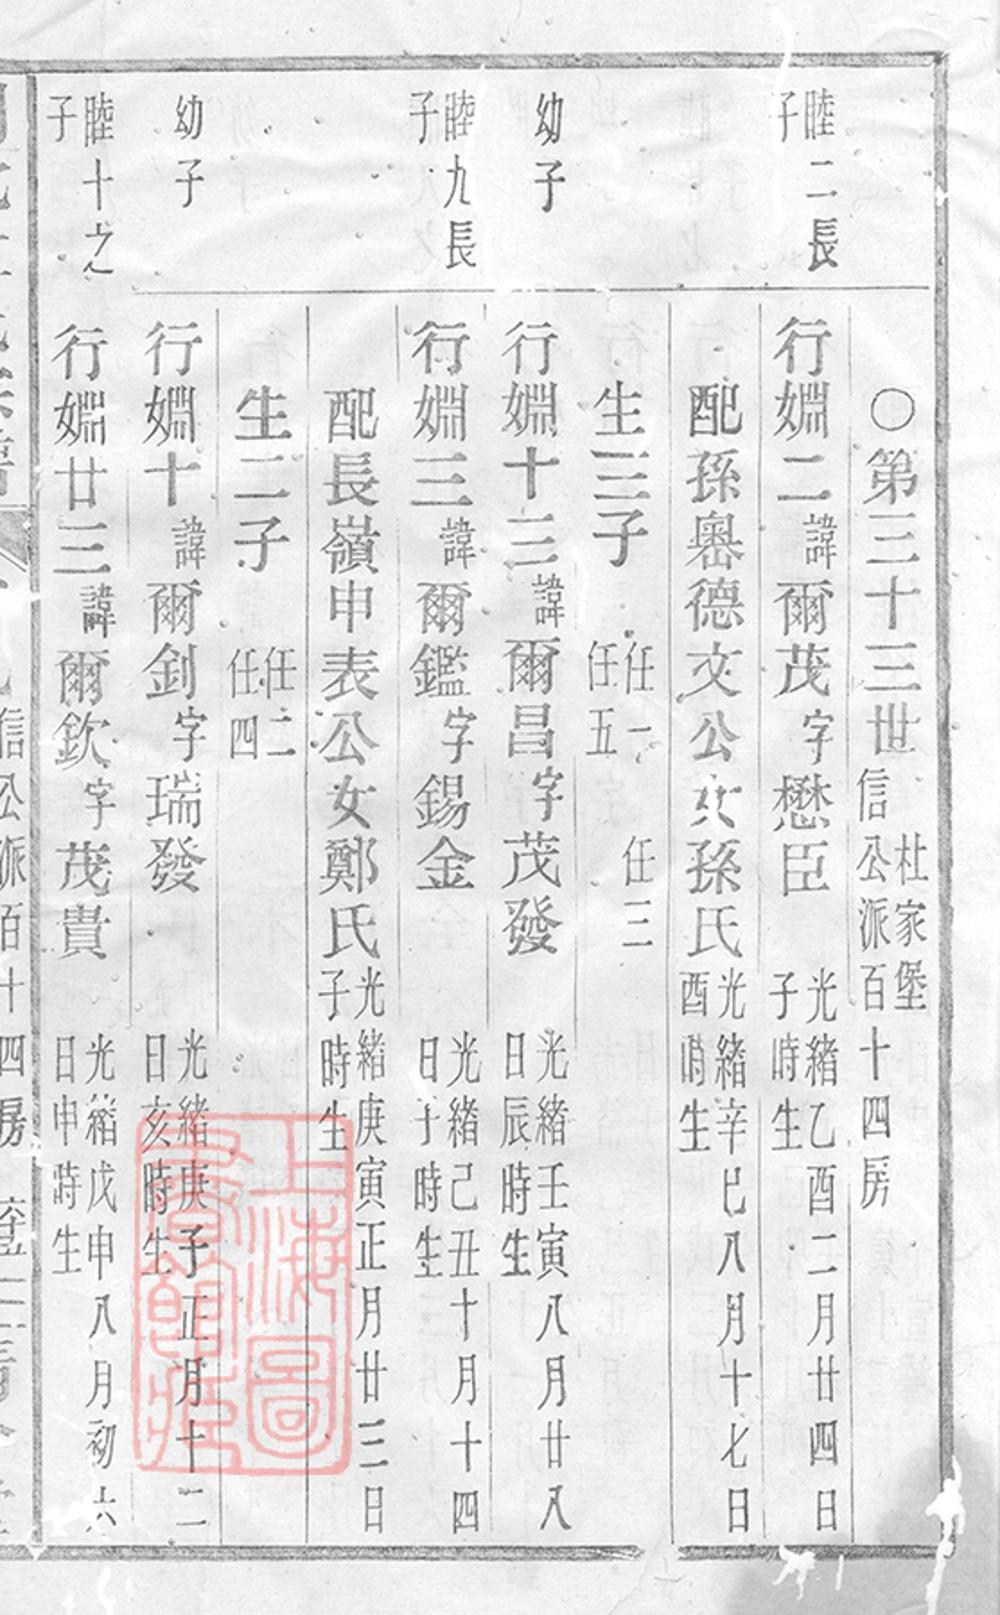 ○第三十三世 杜家堡 信公派百十四房
睦二長子
行婣二諱爾茂字懋臣 光緒乙酉二月廿四日子時生
配孫嶴德文公女孫氏 光緒辛巳八月十七日酉時生
生三子 任一 任三 任五
幼子
行婣十三諱爾昌字茂發 光緒壬寅八月廿八日辰時生
睦九長子
行婣三諱爾鑑字錫金 光緒己丑十月十四日子時生
配長嶺申表公女鄭氏 光緒庚寅正月廿三日子時生
生二子 任二 任四
幼子
行婣十諱爾釗字瑞發 光緒庚子正月十二日亥時生
睦十之子
行婣廿三諱爾欽字茂貴 光緒戊申八月初六日申時生
信公派百十四房
上海圖書館藏